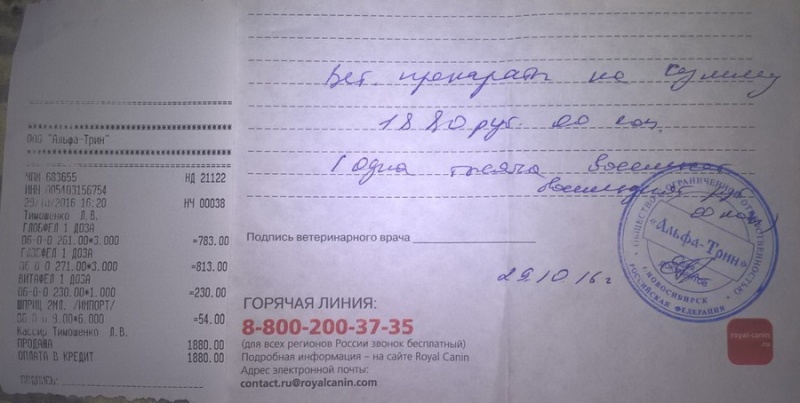 ООО "Альфа-Трин"
ЧПМ 683655 НД 21122
ИНН 005403156754
29/10/2016 16:20 НЧ 00038
Тимошенко Л.В.
ГЛОБФЕЛ 1 ДОЗА
06-0-0 261.00*3.000 =783.00
1 ДОЗА
06-0-0 271.00*3.000 =813.00
ВИТАФЕЛ 1 ДОЗА
06-0-0 230.00*1.000 =230.00
ШПРИЦ 2МЛ. /ИМПОРТ/
9.00*6.000 =54.00
Кассир Тимошенко Л.В.
ПРОДАЖА 1880.00
ОПЛАТА В КРЕДИТ 1880.00
ПОДПИСЬ:
Вет. препараты на сумму
1880 руб. 00 коп.
одна тысяча
восемьдесят руб
00 коп)
Подпись ветеринарного врача
29.10.16 г
ГОРЯЧАЯ ЛИНИЯ:
8-800-200-37-35
(для всех регионов России звонок бесплатный)
Подробная информация – на сайте Royal Canin
Адрес электронной почты:
contact.ru@royalcanin.com
ОБЩЕСТВО С ОГРАНИЧЕННОЙ ОТВЕТСТВЕННОСТЬЮ
«Альфа-Трин»
НОВОСИБИРСК
РОССИЙСКАЯ ФЕДЕРАЦИЯ
royal-canin.ru